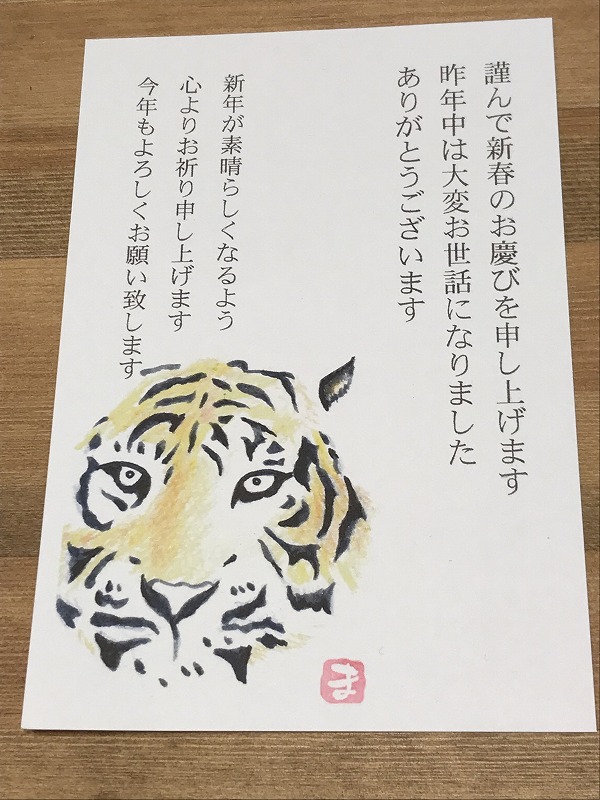 謹んで新春のお慶びを申し上げます
昨年中は大変お世話になりました
ありがとうございます
新年が素晴らしくなるよう
心よりお祈り申し上げます
今年もよろしくお願い致します
ま